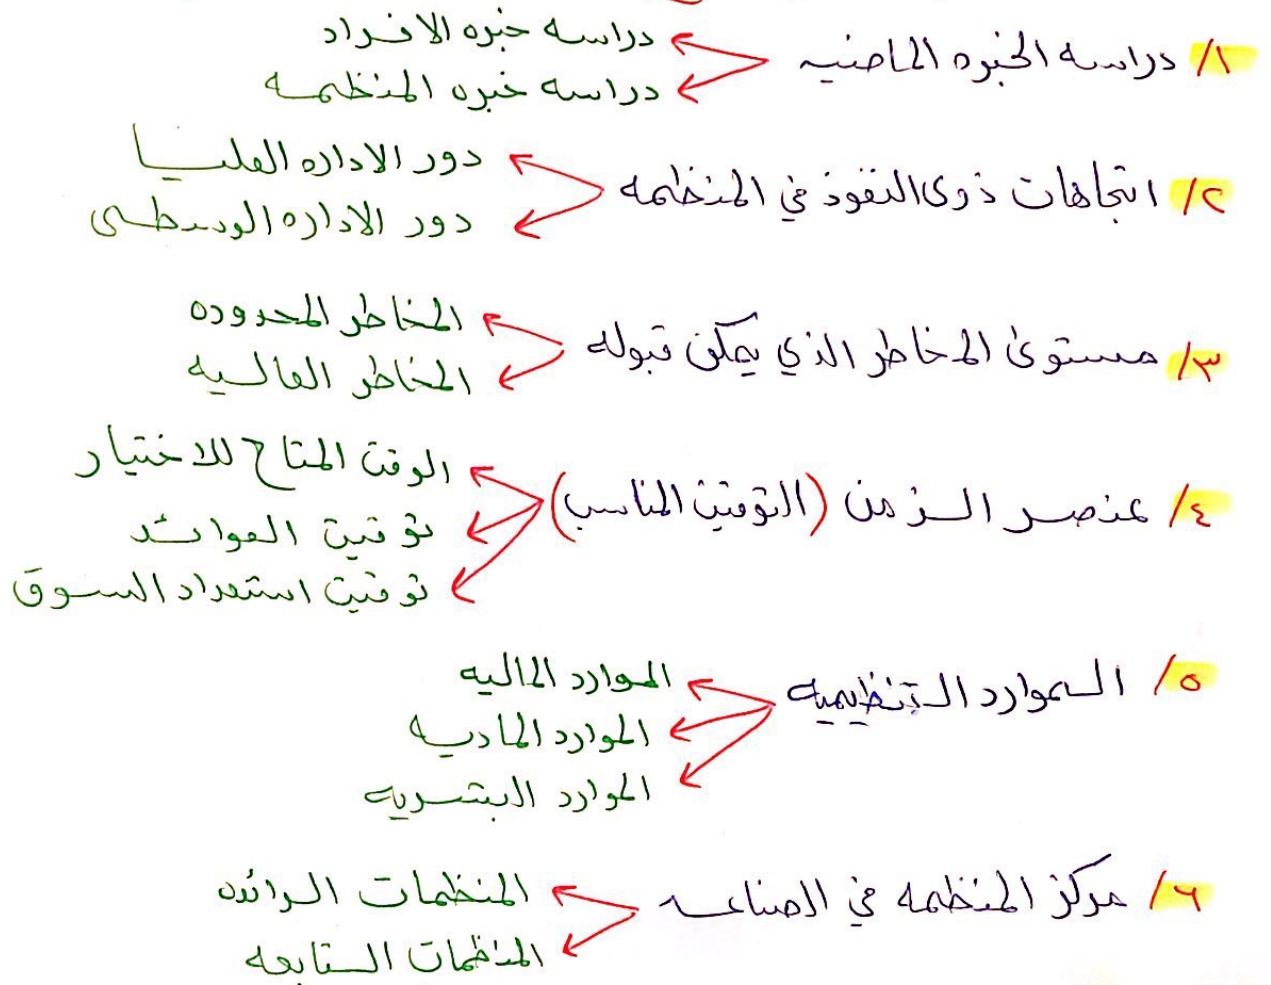 ١/ دراسه الخبره الماضيه
دراسه خبره الافراد
دراسه خبره المنظمه
٢/ اتجاهات ذوى النفوذ في المنظمه
دور الاداره العليا
دور الاداره الوسطى
٣/ مستوى المخاطر الذي يمكن قبوله
المخاطر المحدوده
المخاطر العاليه
٤/ عنصر الزمن (التوقيت المناسب)
الوقت المتاح للاختيار
توقيت العوائد
توقيت استعداد السوق
٥/ الموارد التنظيميه
الموارد الماليه
الموارد الماديه
الموارد البشريه
٦/ مركز المنظمه في الصناعه
المنظمات الرائده
المنظمات التابعه